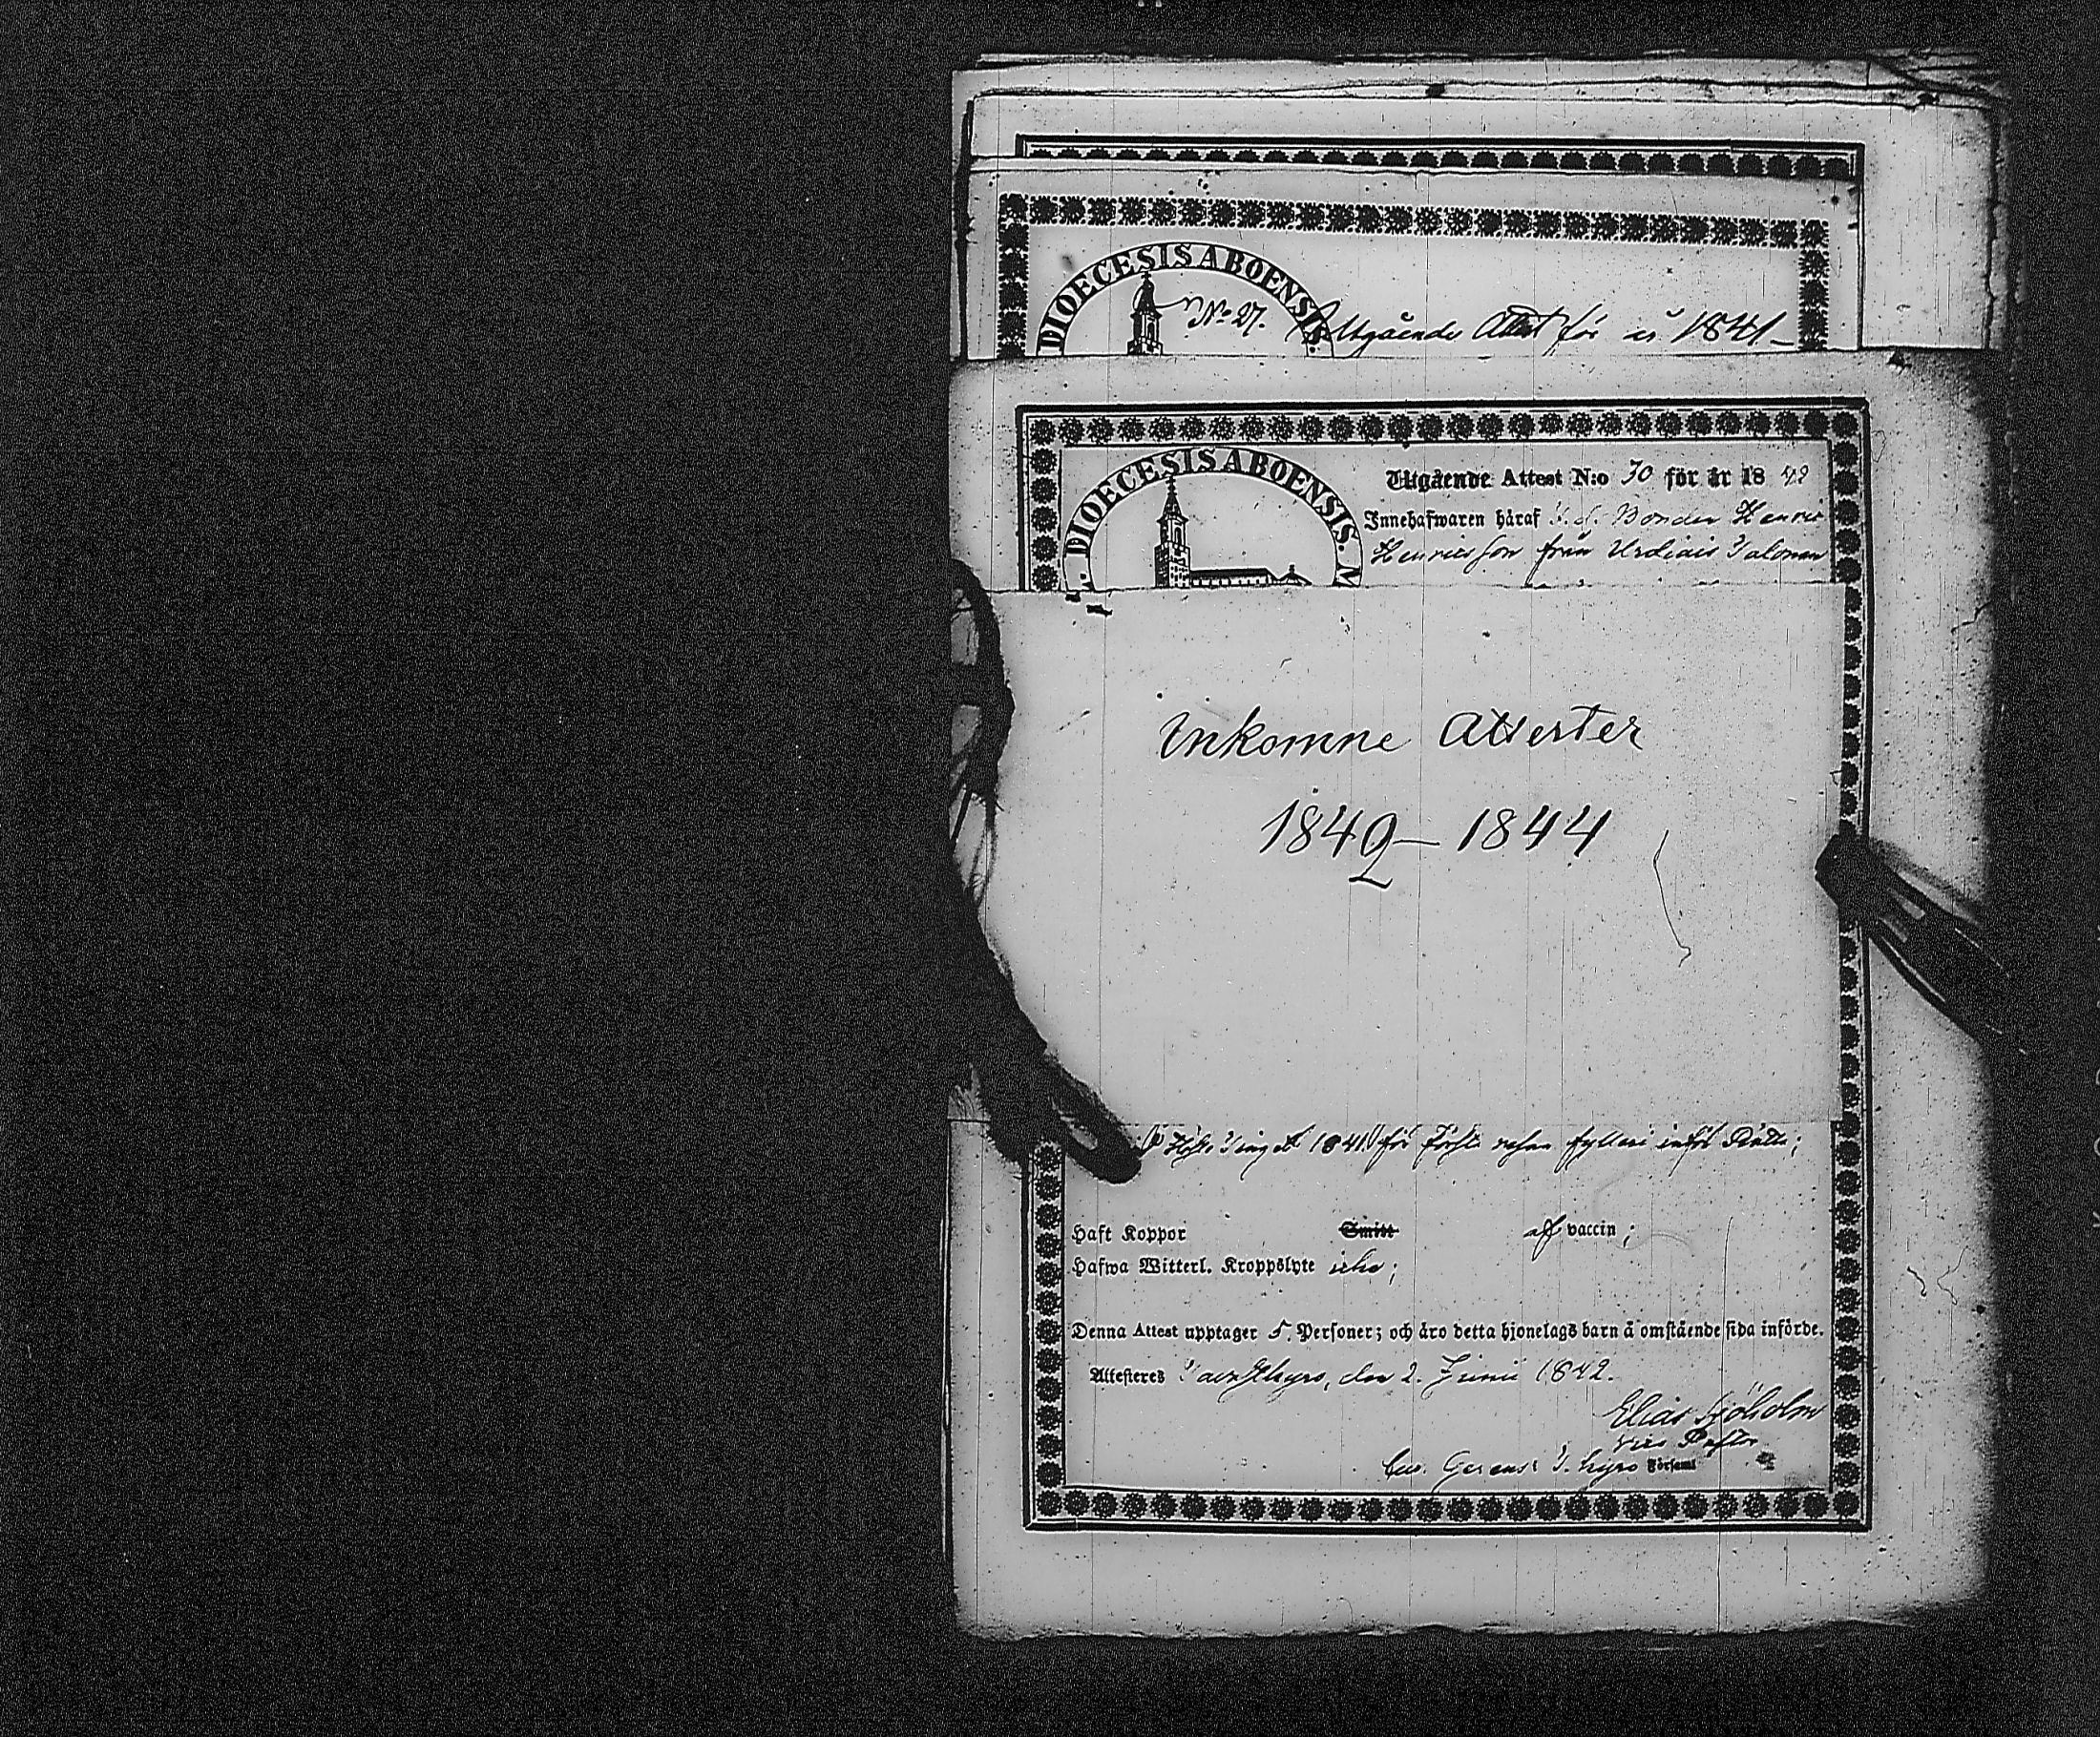 DIOECESIS ABOENSIS
No 27. Utgående Attest för år 1841
DIOECESIS ABOENSIS. M
Utgående Attest N:o 30 för år 1842
Innehafwaren håraf Bonden Henric
Henricsson från Urdiais
Inkomne Attester
1842 – 1844
1841 för första resan fylleri inför Rätta;
Haft Koppor Smitt af vaccin;
Hafwa Witterl. Kroppslyte icke;
Denna Attest upptager 5. Personer; och äro detta hjonelags barn å omstående sida införde.
Attesteras Tavastkyro, den 2. Junii 1842.
Elias Sjöholm
Vice Pastor
T. kyro Församl